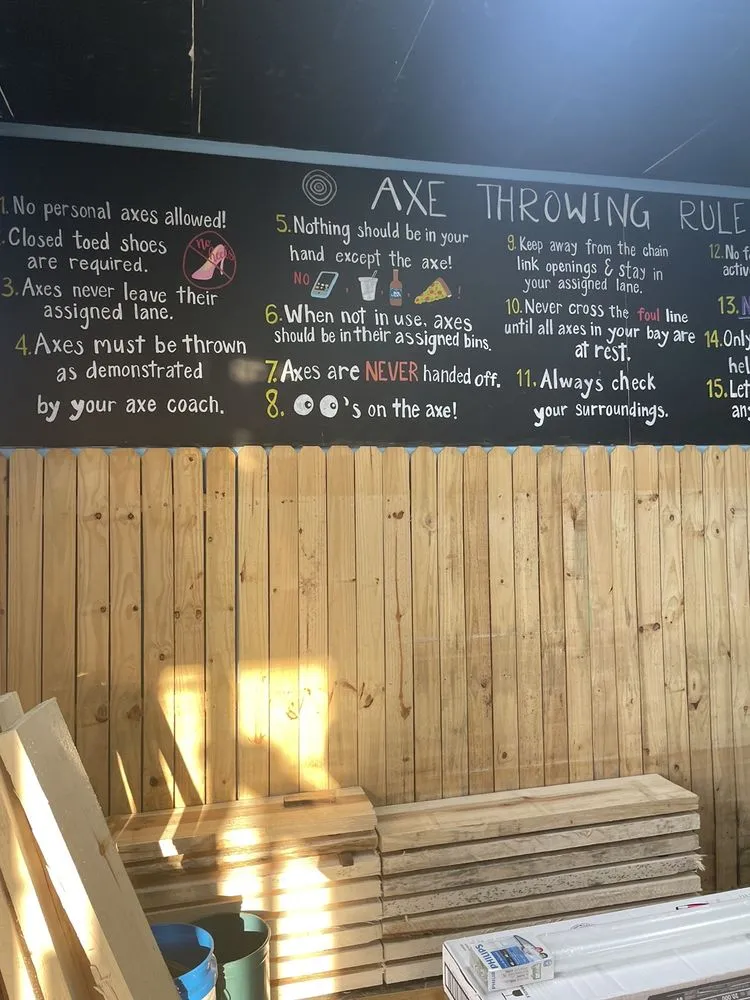 AXE THROWING RULE
1. No personal axes allowed!
Closed toed shoes
are required.
No heels
3. Axes never leave their
assigned lane.
4. Axes must be thrown
as demonstrated
by your axe coach.
5. Nothing should be in your
hand except the axe!
NO
6. When not in use, axes
should be in their assigned bins.
7. Axes are NEVER handed off.
8. 's on the axe!
9. Keep away from the chain
link openings & stay in
your assigned lane.
10. Never cross the foul line
until all axes in your bay are
at rest.
11. Always check
your surroundings.
12. No f
activ
13. N
14. Only
hel
15. Let
an
PHILIPS